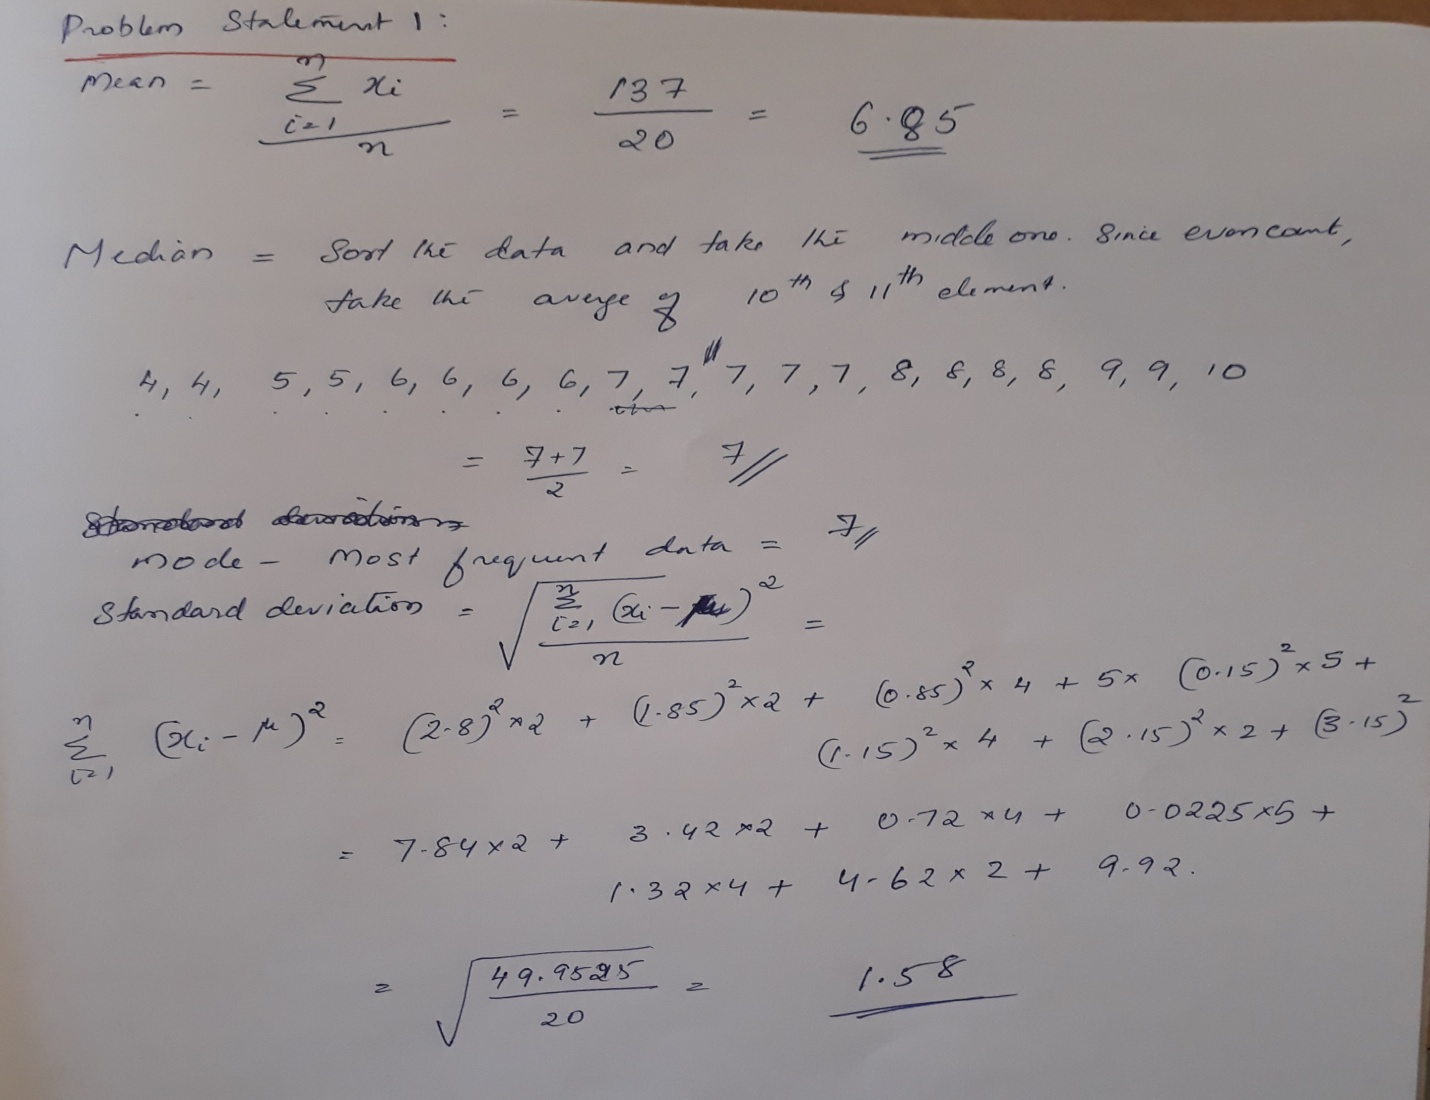 Problem Statement 1:
Mean = n Σ i=1 xi / n = 137 / 20 = 6.85
Median = Sort the data and take the middle one. Since even count,
take the averge of 10th & 11th element.
4, 4, 5, 5, 6, 6, 6, 6, 7, 7, 7, 7, 7, 8, 8, 8, 8, 9, 9, 10
= 7+7 / 2 = 7
Standard deviation
mode - most frequent data = 7
Standard deviation = √ n Σ i=1 (xi - μ)² / n =
n Σ i=1 (xi - μ)² = (2.8)² × 2 + (1.85)² × 2 + (0.85)² × 4 + 5 × (0.15)² × 5 +
(1.15)² × 4 + (2.15)² × 2 + (3.15)²
= 7.84 × 2 + 3.42 × 2 + 0.72 × 4 + 0.0225 × 5 +
1.32 × 4 + 4.62 × 2 + 9.92.
= √ 49.9525 / 20 = 1.58